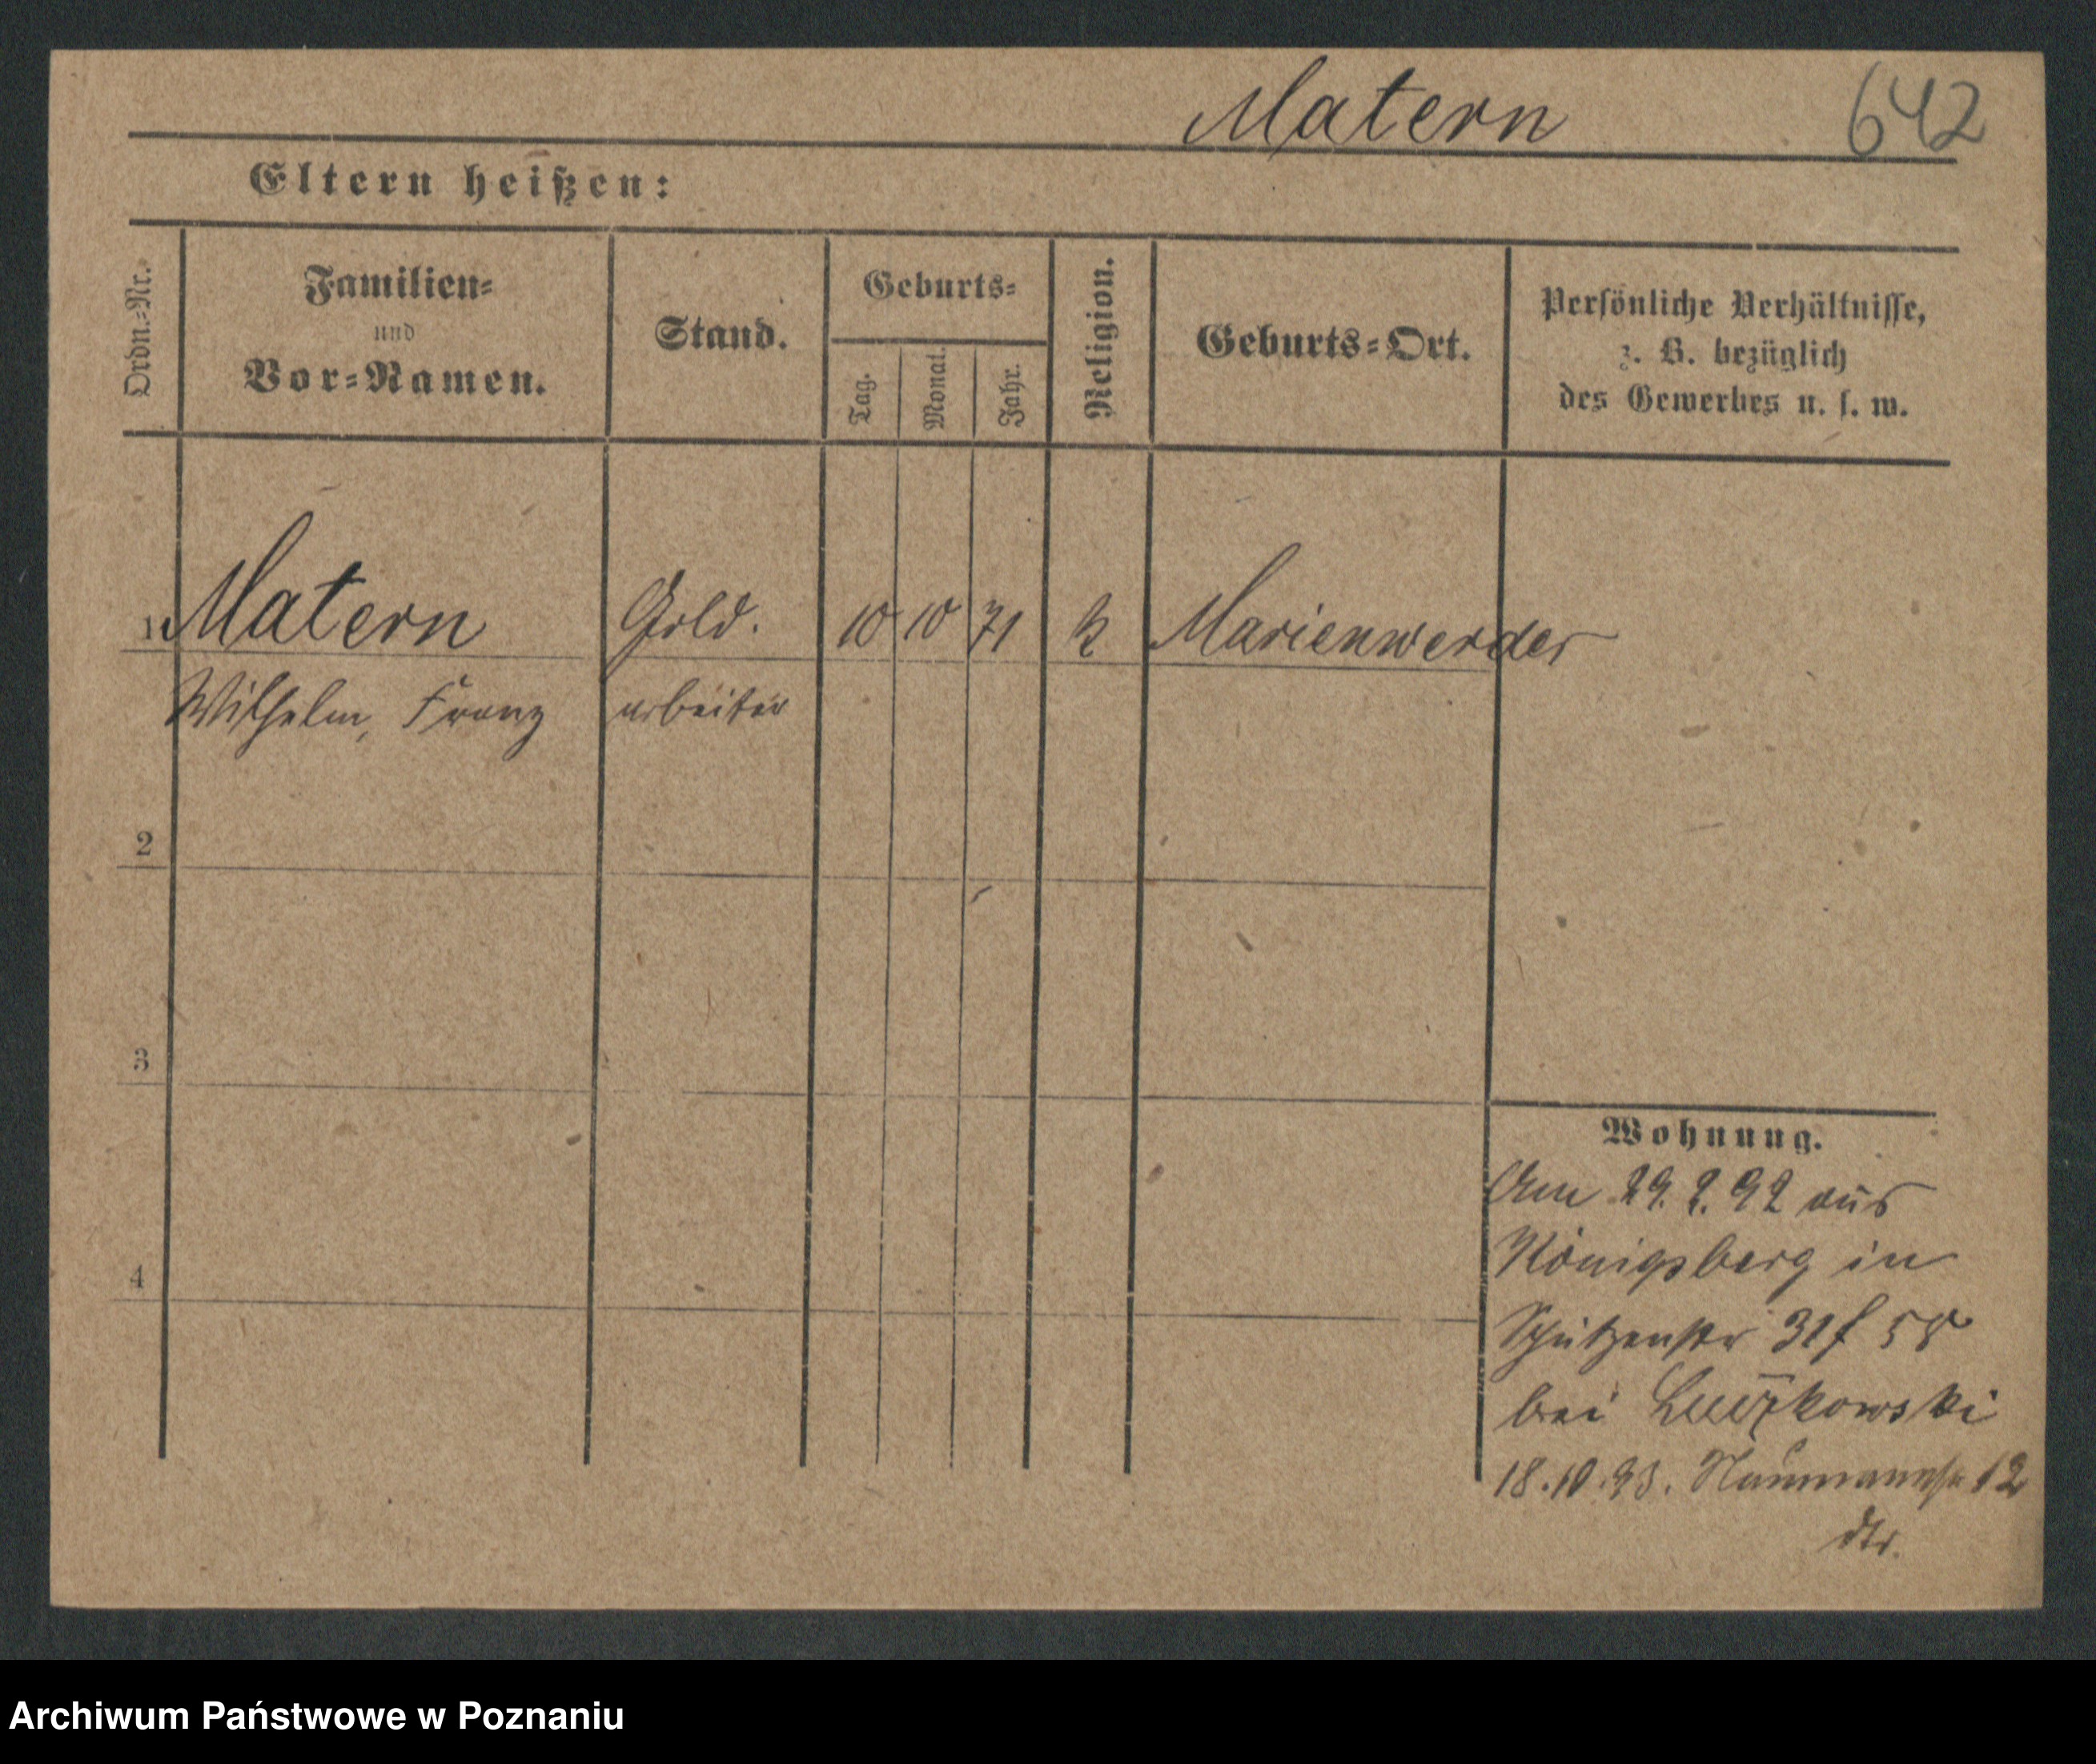 Matern 642
Eltern heißen:
Ordn.-Nr.
Familien-
und
Vor-Namen.
Stand.
Geburts-
Tag.
Monat.
Jahr.
Religion.
Geburts-Ort.
Persönliche Verhältnisse,
z. B. bezüglich
des Gewerbes u. s. w.
1 Matern Gold. 10 10 71 k Marienwerder
Wilhelm, Franz arbeiter
2
3
4
Wohnung.
Am 29. 92 aus
Königsberg in
Schützenstr 31
bei
18.10.93. Naumannstr 12
Archiwum Państwowe w Poznaniu